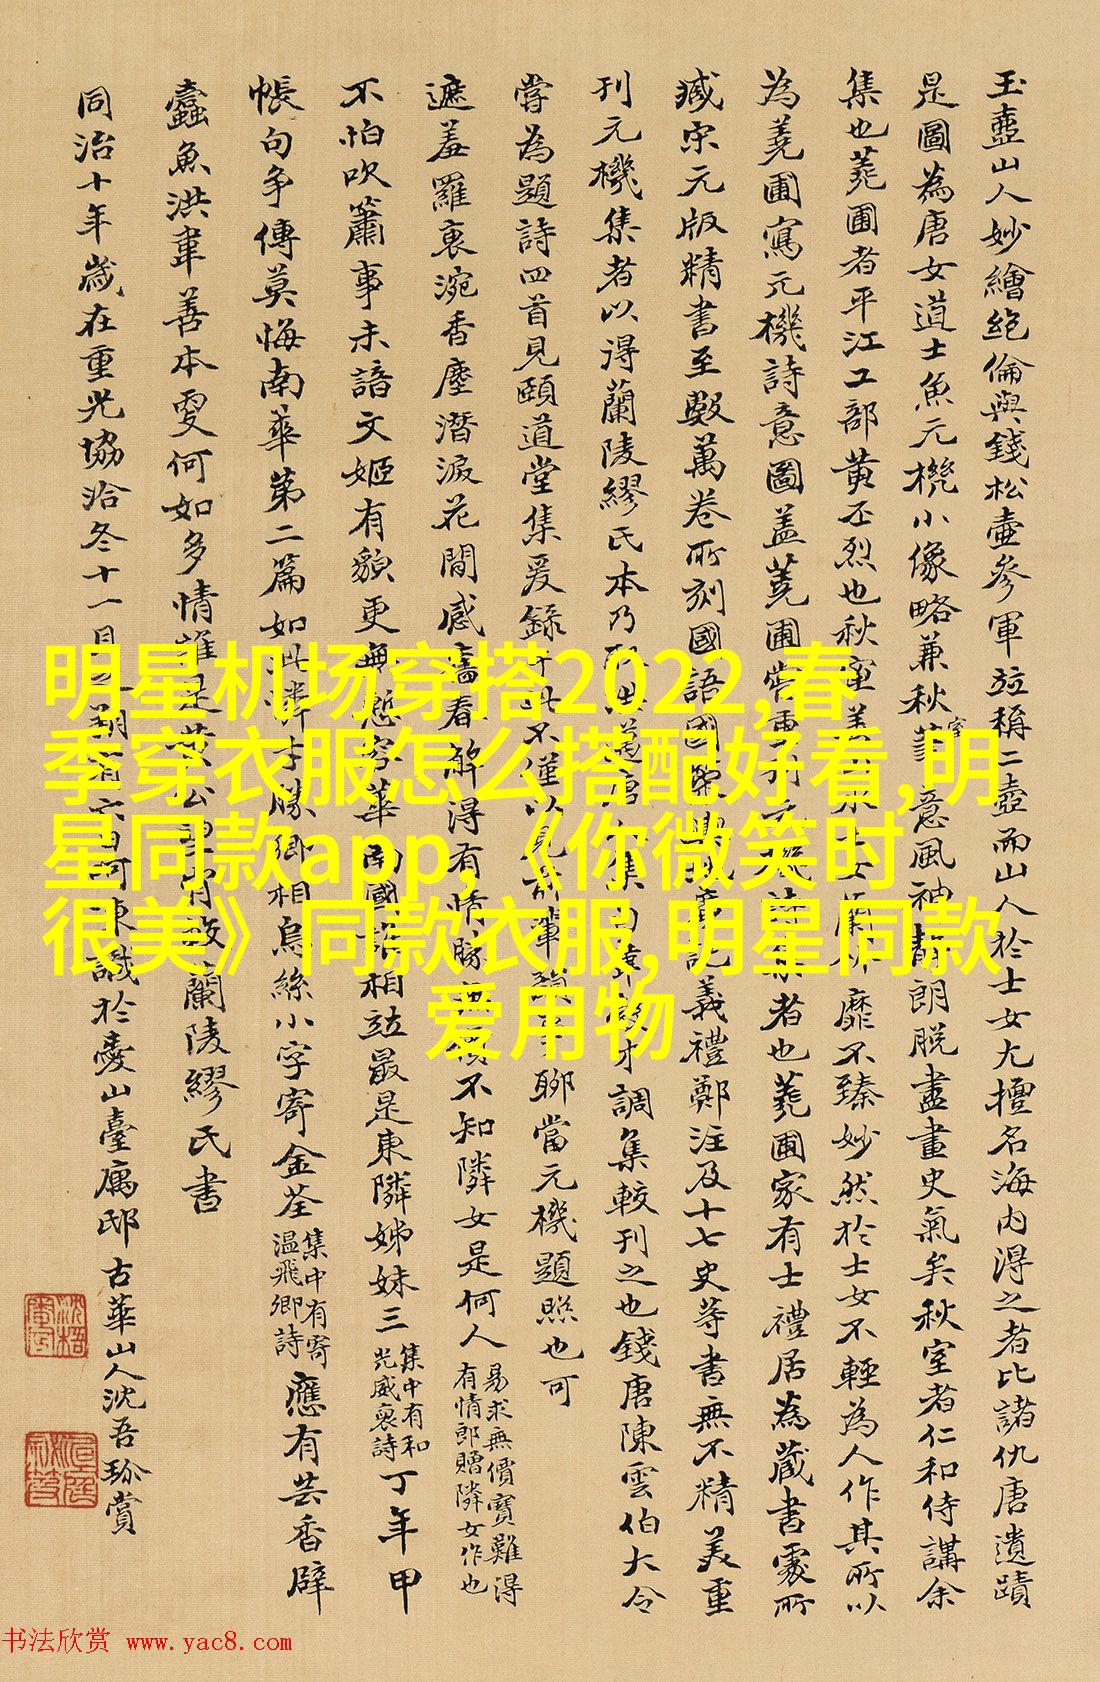 玉壺山人妙繪絕倫與錢松壺參軍竝稱二壺而山人於士女尤擅名海内得之者比諸仇唐遺蹟
是圖為唐女道士魚元機小像略兼秋室意風神朗脱盡畫史氣矣秋室者仁和侍講余
集也蕘圃者平江工部黄丕烈也秋室善士女蘭竹靡不臻妙然於士女不輕為人作其所以
為蕘圃寫元機詩意圖盖蕘圃嘗重刊元機詩集者也蕘圃家有士禮居為藏書處所
臧宋元版精書至數萬卷所刻國語國策義禮鄭注及十七史等書無不精美重
刊元機集者以得蘭陵繆氏本乃唐集才調集較刊之也錢唐陳雲伯大令
嘗為題詩四首見頤道堂集爰錄於此不僅以見前輩聊當元機題照也可
遮羞羅裹涴香塵潛淚花間感舊春解得有情勝無價不知隣女是何人
易求無價寶難得
有情郎贈隣女作也
不怕吹簫事未諳文姬有貌更無慙容華南國相竝最是東隣姊妹三
集中有和
光威裒詩
丁年甲
帳句争傳莫悔南華第二篇如此才勝卿相烏絲小字寄金荃
集中有寄
温飛卿詩
應有芸香辟
蠹魚洪韋善本夐何如多情誰是蘭陵繆氏書
同治十年歲在重光協洽冬十一月古華山人沈吾珍賞
明星机场穿搭2022,春
季穿衣服怎么搭配好看,明
星同款app,《你微笑时
很美》同款衣服,明星同款
爱用物
书法欣赏 www.yac8.com